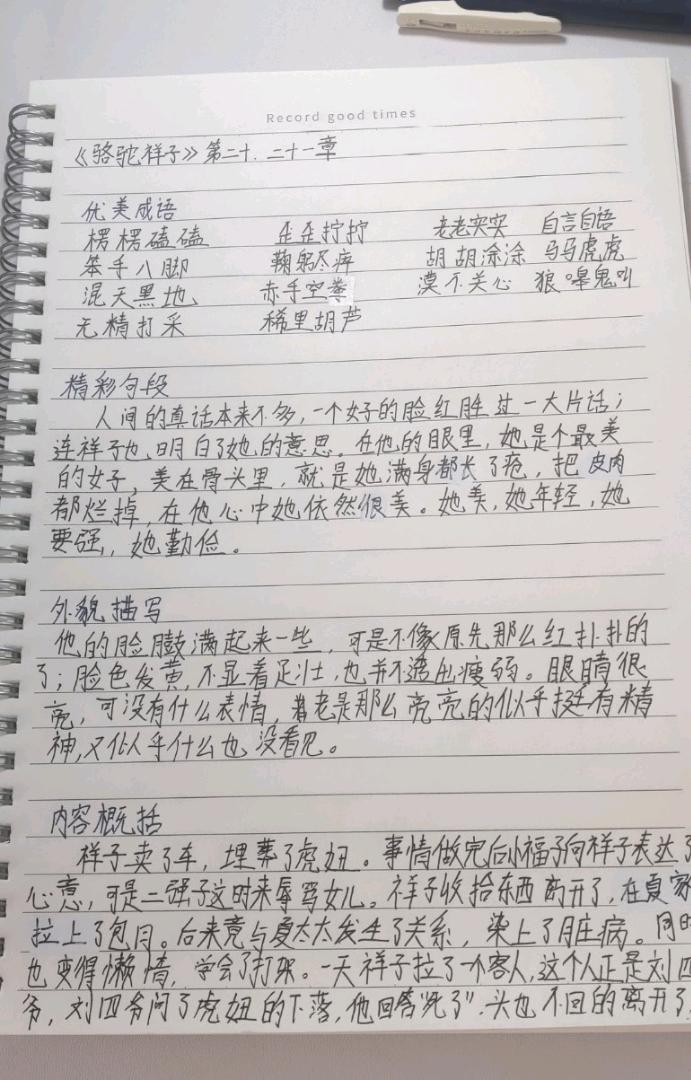 Record good times
《骆驼祥子》第二十、二十一章
优美成语
楞楞磕磕 歪歪拧拧 老老实实 自言自语
笨手八脚 鞠躬尽瘁 胡胡涂涂 马马虎虎
混天黑地 赤手空拳 漠不关心 狼嗥鬼叫
无精打采 稀里胡芦
精彩句段
人间的真话本来不多,一个女子的脸红胜过一大片话;
连祥子也明白了她的意思。在他的眼里,她是个最美
的女子,美在骨头里,就是她满身都长了疮,把皮肉
都烂掉,在他心中她依然很美。她美,她年轻,她
要强,她勤俭。
外貌描写
他的脸臌满起来一些,可是不像原先那么红扑扑的
了;脸色发黄,不显着足壮,也并不透出瘦弱。眼睛很
亮,可没有什么表情,老是那么亮亮的似乎挺有精
神,又似乎什么也没看见。
内容概括
祥子卖了车,埋葬了虎妞。事情做完后小福子向祥子表达了
心意,可是二强子这时来辱骂女儿。祥子收拾东西离开了,在夏家
拉上了包月。后来竟与夏太太发生了关系,染上了脏病。同时
也变得懒惰,学会了打架。一天祥子拉了一个客人,这个人正是刘四
爷,刘四爷问了虎妞的下落,他回答"死了",头也不回的离开了